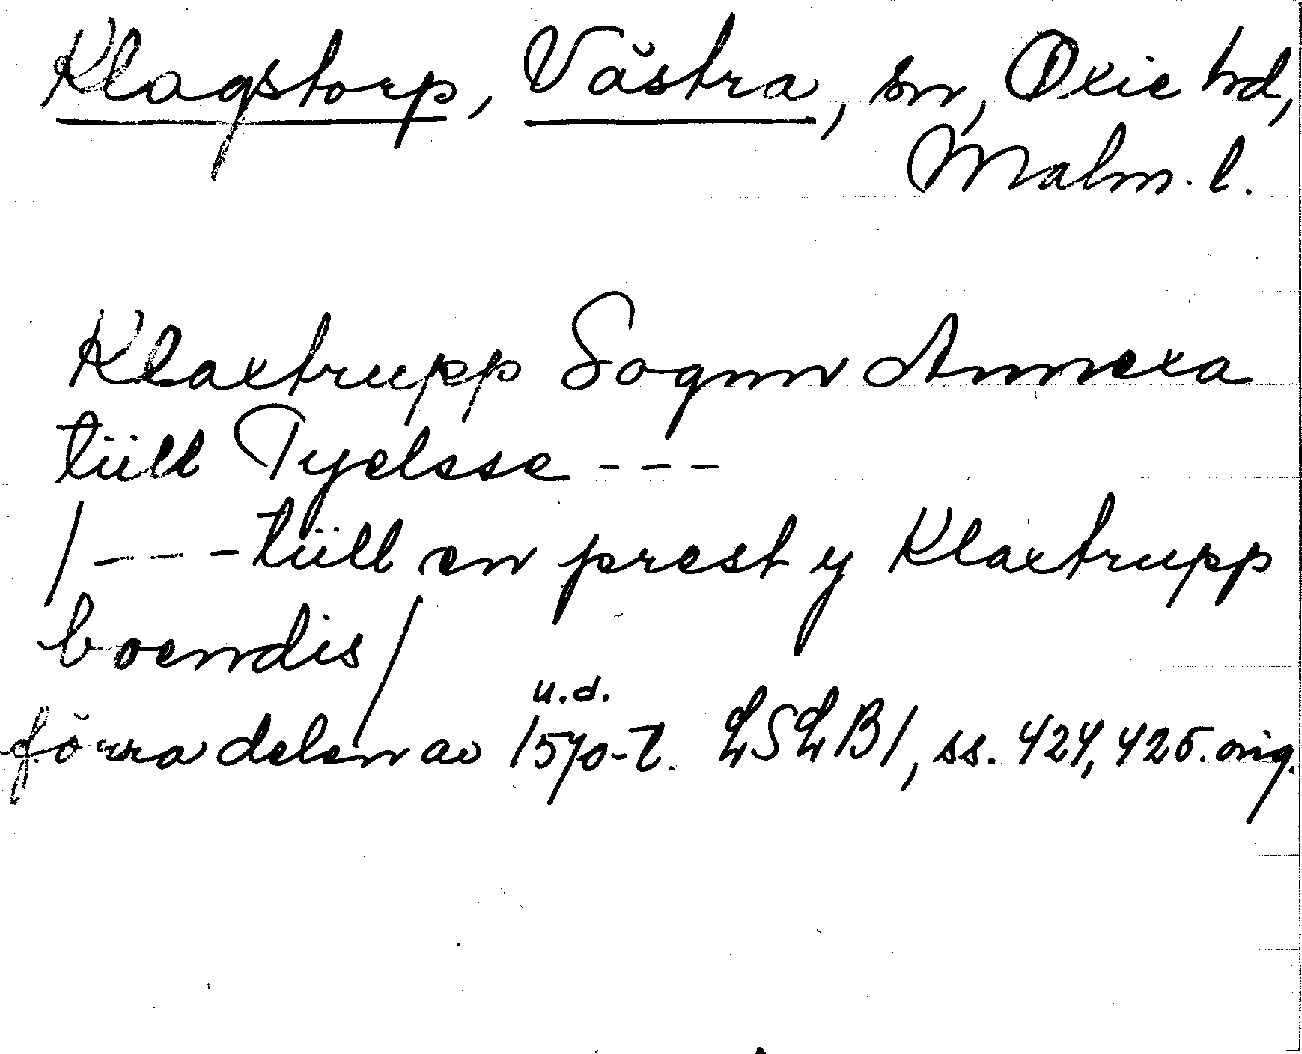 Klagstorp, Västra, sn, Oxie hd,
Malm. l.
Klaxtrupp Sognn Annexa
tüll Tyelsse - - -
/ - - - tüll en prest y Klaxtrupp
boendis/
u.d.
förra delen av 1570-t. LSLB1, ss. 424, 425. orig.